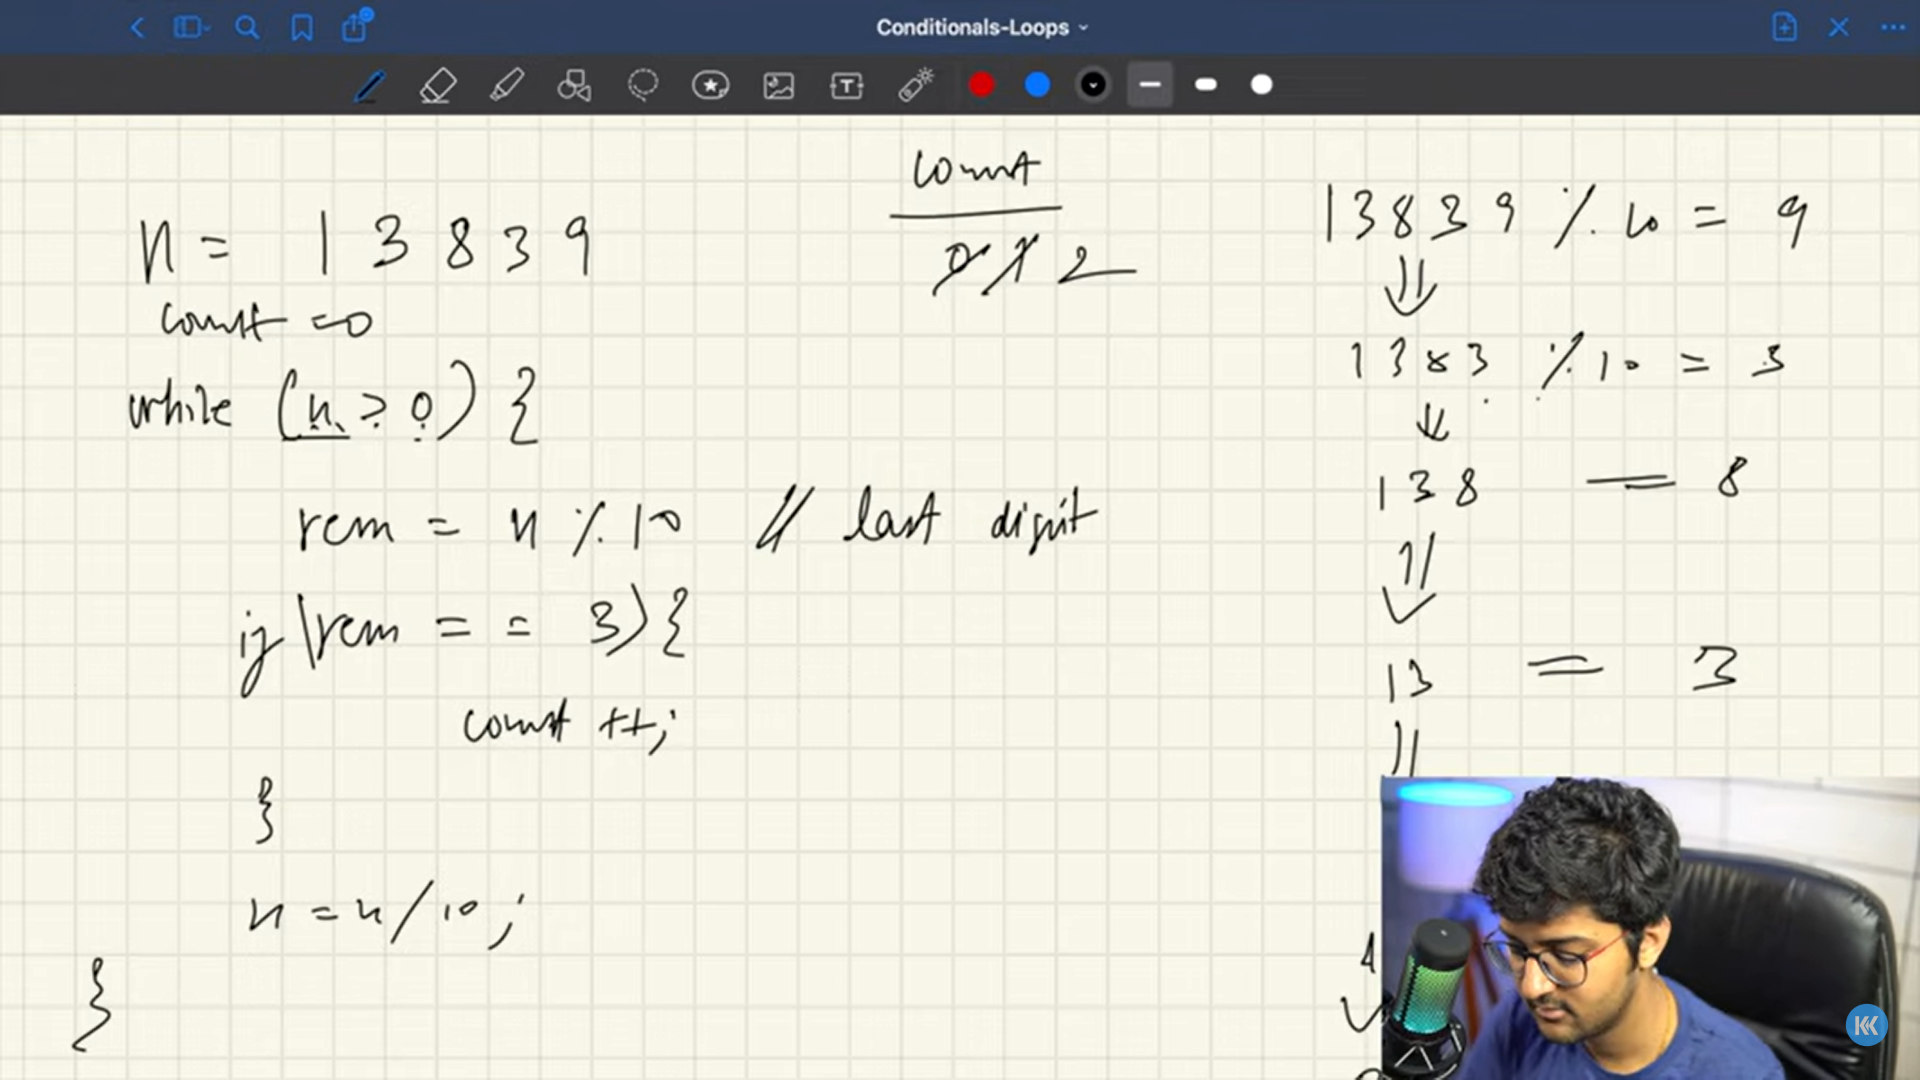 Conditionals-Loops
n = 13839
count = 0
while (n > 0) {
rem = n % 10 // last digit
if (rem == 3) {
count ++;
}
n = n/10;
}
count
0 1 2
13839 % 10 = 9
1383 % 10 = 3
138 = 8
13 = 3
1